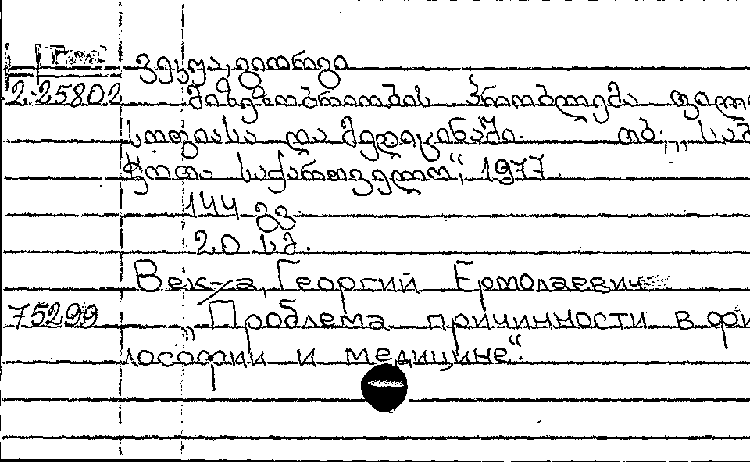 ვეკუა, გიორგი
2.25802 მიზეზობრიობის პრობლემა ფილო
სოფიასა და მედიცინაში. თბ., „საბ
ჭოთა საქართველო“, 1977.
144 გვ.
20 სმ.
Векуа, Георгий Ермолаевич
75299 „Проблема причинности в фи
лософии и медицине“.